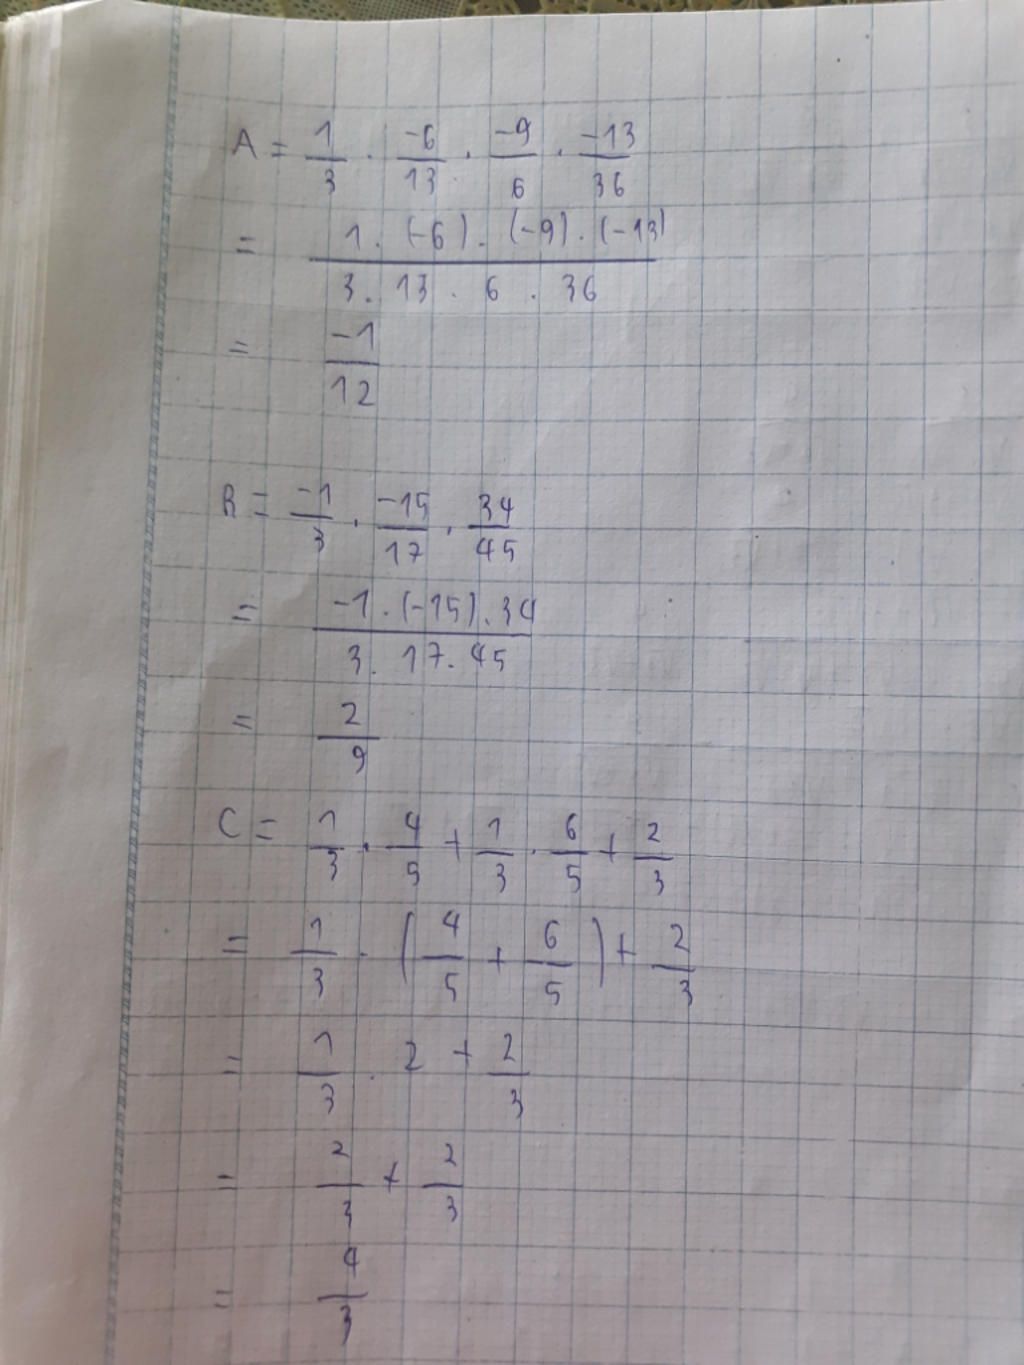 A = 1/3 . -6/13 . -9/6 . -13/36
= 1 . (-6) . (-9) . (-13) / 3 . 13 . 6 . 36
= -1/12
B = -1/3 . -15/17 . 34/45
= -1 . (-15) . 34 / 3 . 17 . 45
= 2/9
C = 1/3 . 4/5 + 1/3 . 6/5 + 2/3
= 1/3 . (4/5 + 6/5) + 2/3
= 1/3 . 2 + 2/3
= 2/3 + 2/3
= 4/3